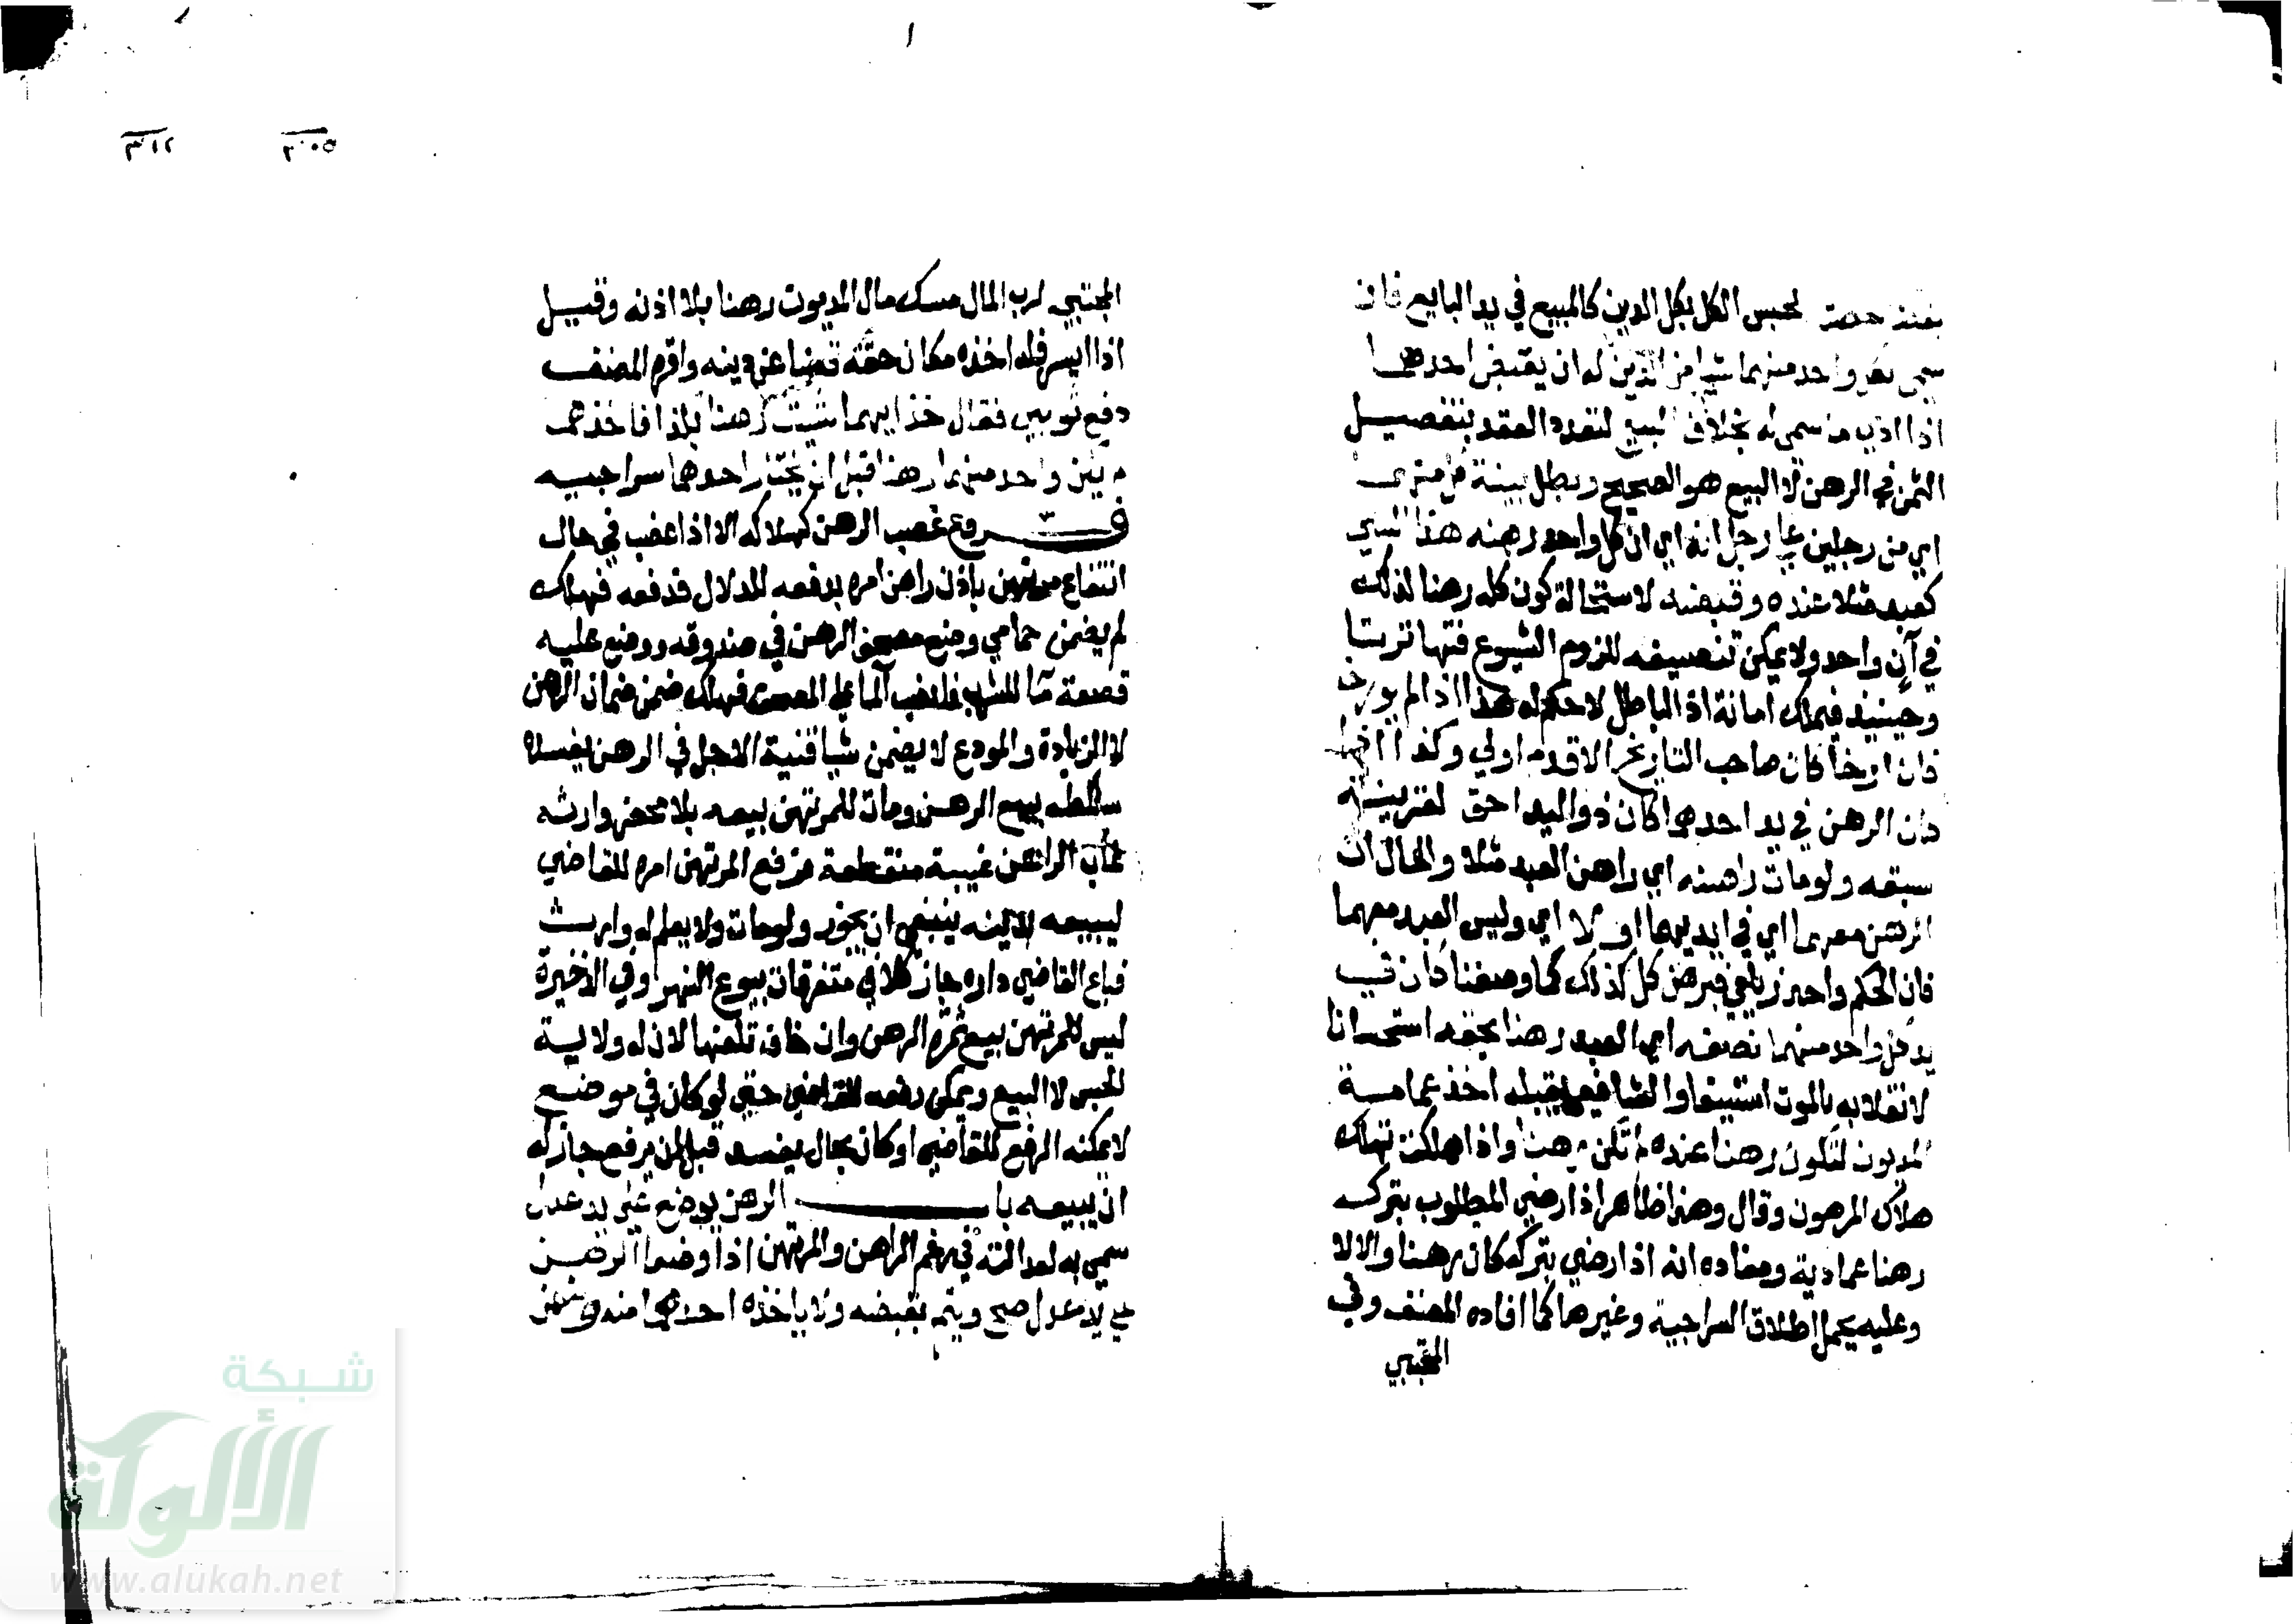 حصته لحبس الكل بكل الدين كالمبيع في يد البايع فان
سمى لكل واحد منهما شيا من الدين له ان يقبض احدهما
اذا ادى ما سمى له بخلاف البيع لتعدد العقد بتفصيل
الثمن في الرهن لا البيع هو الصحيح وبطل بينة كل منهما
اي من رجلين على رجل انه اي ان كل واحد رهنه هذا الشي
كعبد مثلا عنده وقبضه لاستحالة كون كله رهنا لذلك
في آن واحد ولا يمكن تنصيفه للزوم الشيوع فتهاترتا
وحينيذ فيهلك امانة اذ الباطل لا حكم له هذا اذا لم يورخا
فان ارخا كان صاحب التاريخ الاقدم اولى وكذا اذا
كان الرهن في يد احدهما كان ذو اليد احق لقرينة
سبقه ولو مات راهنه اي راهن العبد مثلا والحال ان
الرهن معهما اي في ايديهما او لا اي وليس العبد معهما
فان الحكم واحد زيلعي فبرهن كل كذلك كما وصفنا كان في
يد كل واحد منهما نصفه اي العبد رهنا بحقه استحسانا
لانقلابه بالموت استيفا والشايع يقبله اخذ عمامة
المديون لتكون رهنا عنده لم تكن رهنا واذا هلكت تهلك
هلاك المرهون وقال وهذا ظاهر اذا رضي المطلوب بتركه
رهنا عمادية ومفاده انه اذا رضي بتركه كان رهنا والا لا
وعليه يحمل اطلاق السراجية وغيرها كما افاده المصنف وفي
المجتبى
المجتبى لرب المال مسك مال المديون رهنا بلا اذنه وقيل
اذا ايس فله اخذه مكان حقه قضا عن دينه واقره المصنف
دفع ثوبين فقال خذ ايهما شيت رهنا بكذا فاخذهما
لم يكن واحد منهما رهنا قبل ان يختار احدهما سراجيه
فروع غصب الرهن كهلاكه الا اذا غصب في حال
انتفاع مرتهن باذن راهن امره بدفعه للدلال فدفعه فهلك
لم يضمن حمامي وضع مصحف الرهن في صندوقه ووضع عليه
قصعة ما للشرب فانصب الما على المصحف فهلك ضمن ضمان الرهن
لا الزيادة والمودع لا يضمن شيا قنية الاجل في الرهن يفسده
سلطه ببيع الرهن ومات للمرتهن بيعه بلا محضر وارثه
غاب الراهن غيبة منقطعة فرفع المرتهن امره للقاضي
ليبيعه بدينه ينبغي ان يجوز ولو مات ولا يعلم له وارث
فباع القاضي داره جاز كذا في متفرقات بيوع النهر وفي الذخيرة
ليس للمرتهن بيع ثمرة الرهن وان خاف تلفها لان له ولاية
الحبس لا البيع ويمكن رفعه للقاضي حتى لو كان في موضع
لا يمكنه الرفع للقاضي او كان بحال يفسد قبل ان يرفع جاز له
ان يبيعه باب الرهن يوضع على يد عدل
سمي به لعدالته في زعم الراهن والمرتهن اذا وضعا الرهن
على يد عدل صح ويتم بقبضه ولا ياخذه احدهما منه وضمن